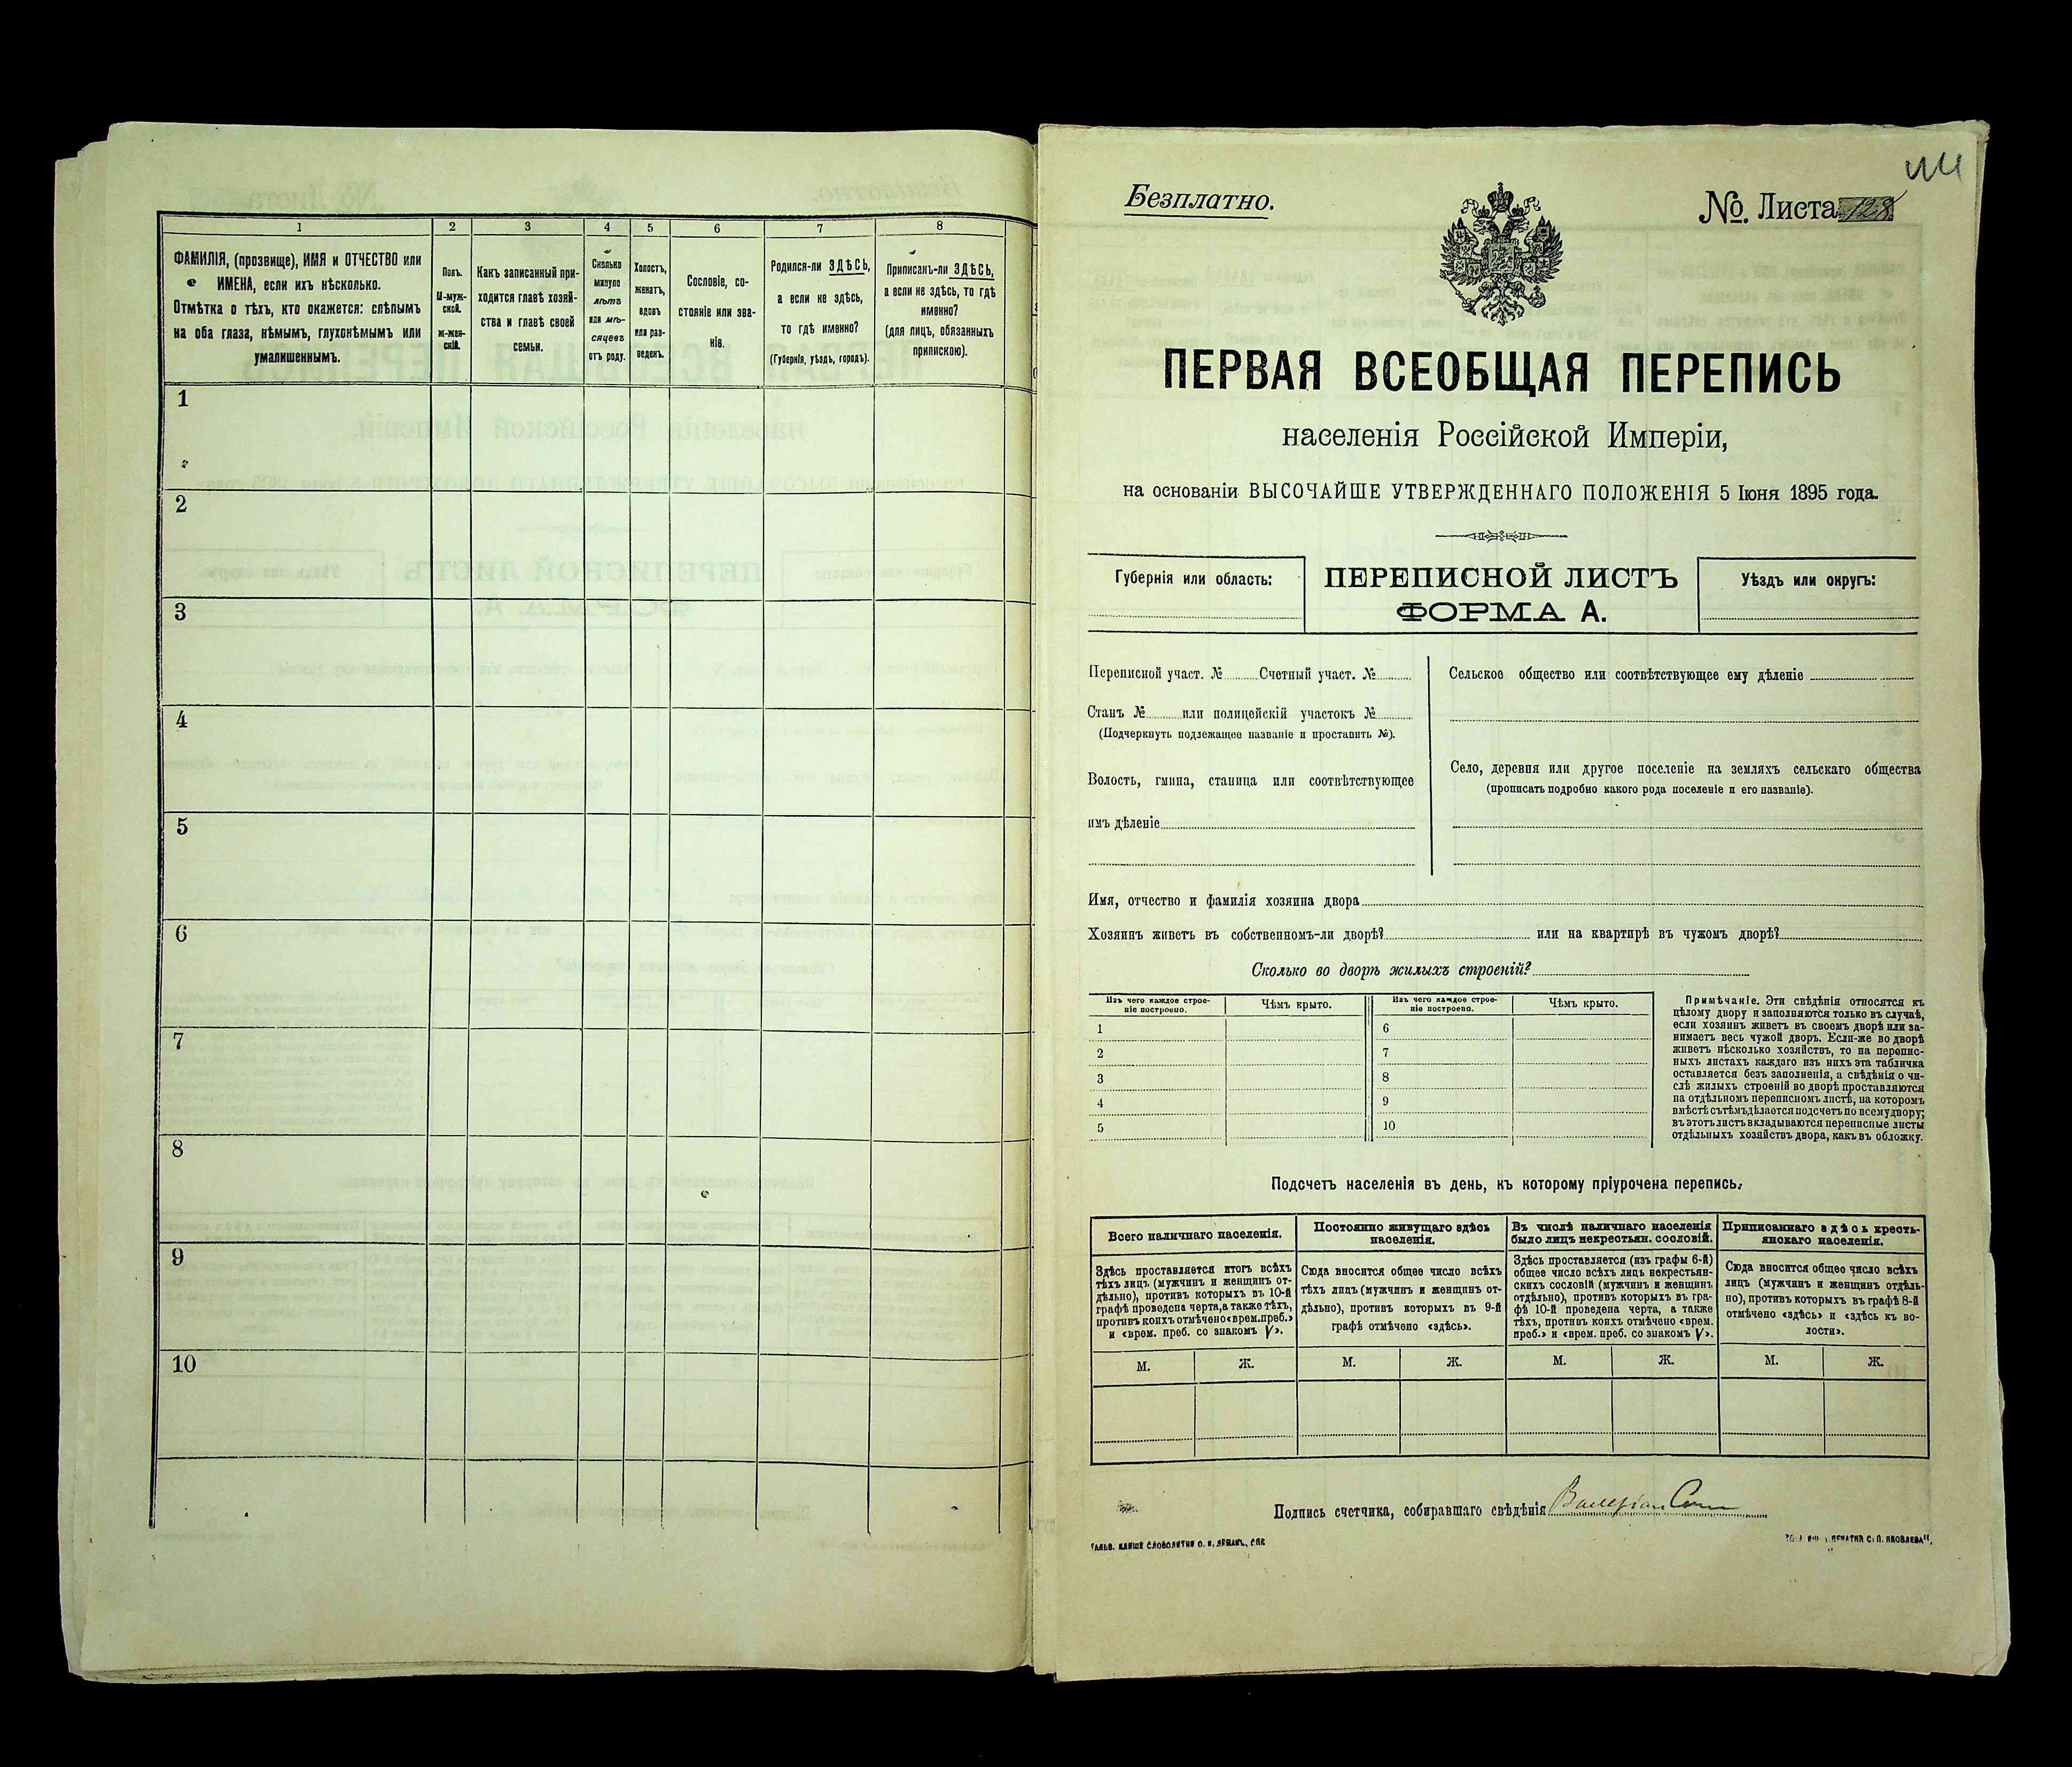 1
ФАМИЛІЯ, (прозвище), ИМЯ и ОТЧЕСТВО или
ИМЕНА, если ихъ нѣсколько.
Отмѣтка о тѣхъ, кто окажется: слѣпымъ
на оба глаза, нѣмымъ, глухонѣмымъ или
умалишеннымъ.
2
Полъ.
М-муж-
ской.
Ж-жен-
скій.
3
Какъ записанный при-
ходится главѣ хозяй-
ства и главѣ своей
семьи.
4
Сколько
минуло
лѣтъ
или мѣ-
сяцевъ
отъ роду.
5
Холостъ,
женатъ,
вдовъ
или раз-
веденъ.
6
Сословіе, со-
стояніе или зва-
ніе.
7
Родился-ли ЗДѢСЬ,
а если не здѣсь,
то гдѣ именно?
(Губернія, уѣздъ, городъ).
8
Приписанъ-ли ЗДѢСЬ,
а если не здѣсь, то гдѣ
именно?
(для лицъ, обязанныхъ
припискою).
1
2
3
4
5
6
7
8
9
10
Безплатно.
№. Листа 128
ПЕРВАЯ ВСЕОБЩАЯ ПЕРЕПИСЬ
населенія Россійской Имперіи,
на основаніи ВЫСОЧАЙШЕ УТВЕРЖДЕННАГО ПОЛОЖЕНІЯ 5 Іюня 1895 года.
Губернія или область:
ПЕРЕПИСНОЙ ЛИСТЪ
ФОРМА А.
Уѣздъ или округъ:
Переписной участ. № Счетный участ. №
Станъ № или полицейскій участокъ №
(Подчеркнуть подлежащее названіе и проставить №).
Волость, гмина, станица или соотвѣтствующее
имъ дѣленіе
Сельское общество или соотвѣтствующее ему дѣленіе
Село, деревня или другое поселеніе на земляхъ сельскаго общества
(прописать подробно какого рода поселеніе и его названіе).
Имя, отчество и фамилія хозяина двора
Хозяинъ живетъ въ собственномъ-ли дворѣ? или на квартирѣ въ чужомъ дворѣ?
Сколько во дворѣ жилыхъ строеній?
Изъ чего каждое строе-
ніе построено.
Чѣмъ крыто.
Изъ чего каждое строе-
ніе построено.
Чѣмъ крыто.
1
2
3
4
5
6
7
8
9
10
Примѣчаніе. Эти свѣдѣнія относятся къ
цѣлому двору и заполняются только въ случаѣ,
если хозяинъ живетъ въ своемъ дворѣ или за-
нимаетъ весь чужой дворъ. Если-же во дворѣ
живетъ нѣсколько хозяйствъ, то на перепис-
ныхъ листахъ каждаго изъ нихъ эта табличка
оставляется безъ заполненія, а свѣдѣнія о чи-
слѣ жилыхъ строеній во дворѣ проставляются
на отдѣльномъ переписномъ листѣ, на которомъ
вмѣстѣ съ тѣмъ дѣлается подсчетъ по всему двору;
въ этотъ листъ вкладываются переписные листы
отдѣльныхъ хозяйствъ двора, какъ въ обложку.
Подсчетъ населенія въ день, къ которому пріурочена перепись.
Всего наличнаго населенія.
Постоянно живущаго здѣсь
населенія.
Въ числѣ наличнаго населенія
было лицъ некрестьян. сословій.
Приписаннаго здѣсь кресть-
янскаго населенія.
Здѣсь проставляется итогъ всѣхъ
тѣхъ лицъ (мужчинъ и женщинъ от-
дѣльно), противъ которыхъ въ 10-й
графѣ проведена черта, а также тѣхъ,
противъ коихъ отмѣчено «врем. преб.»
и «врем. преб. со знакомъ V».
Сюда вносится общее число всѣхъ
тѣхъ лицъ (мужчинъ и женщинъ от-
дѣльно), противъ которыхъ въ 9-й
графѣ отмѣчено «здѣсь».
Здѣсь проставляется (изъ графы 6-й)
общее число всѣхъ лицъ некрестьян-
скихъ сословій (мужчинъ и женщинъ
отдѣльно), противъ которыхъ въ гра-
фѣ 10-й проведена черта, а также
тѣхъ, противъ коихъ отмѣчено «врем.
преб.» и «врем. преб. со знакомъ V».
Сюда вносится общее число всѣхъ
лицъ (мужчинъ и женщинъ отдѣль-
но), противъ которыхъ въ графѣ 8-й
отмѣчено «здѣсь» и «здѣсь къ во-
лости».
М. Ж. М. Ж. М. Ж. М. Ж.
Подпись счетчика, собиравшаго свѣдѣнія Валеріан